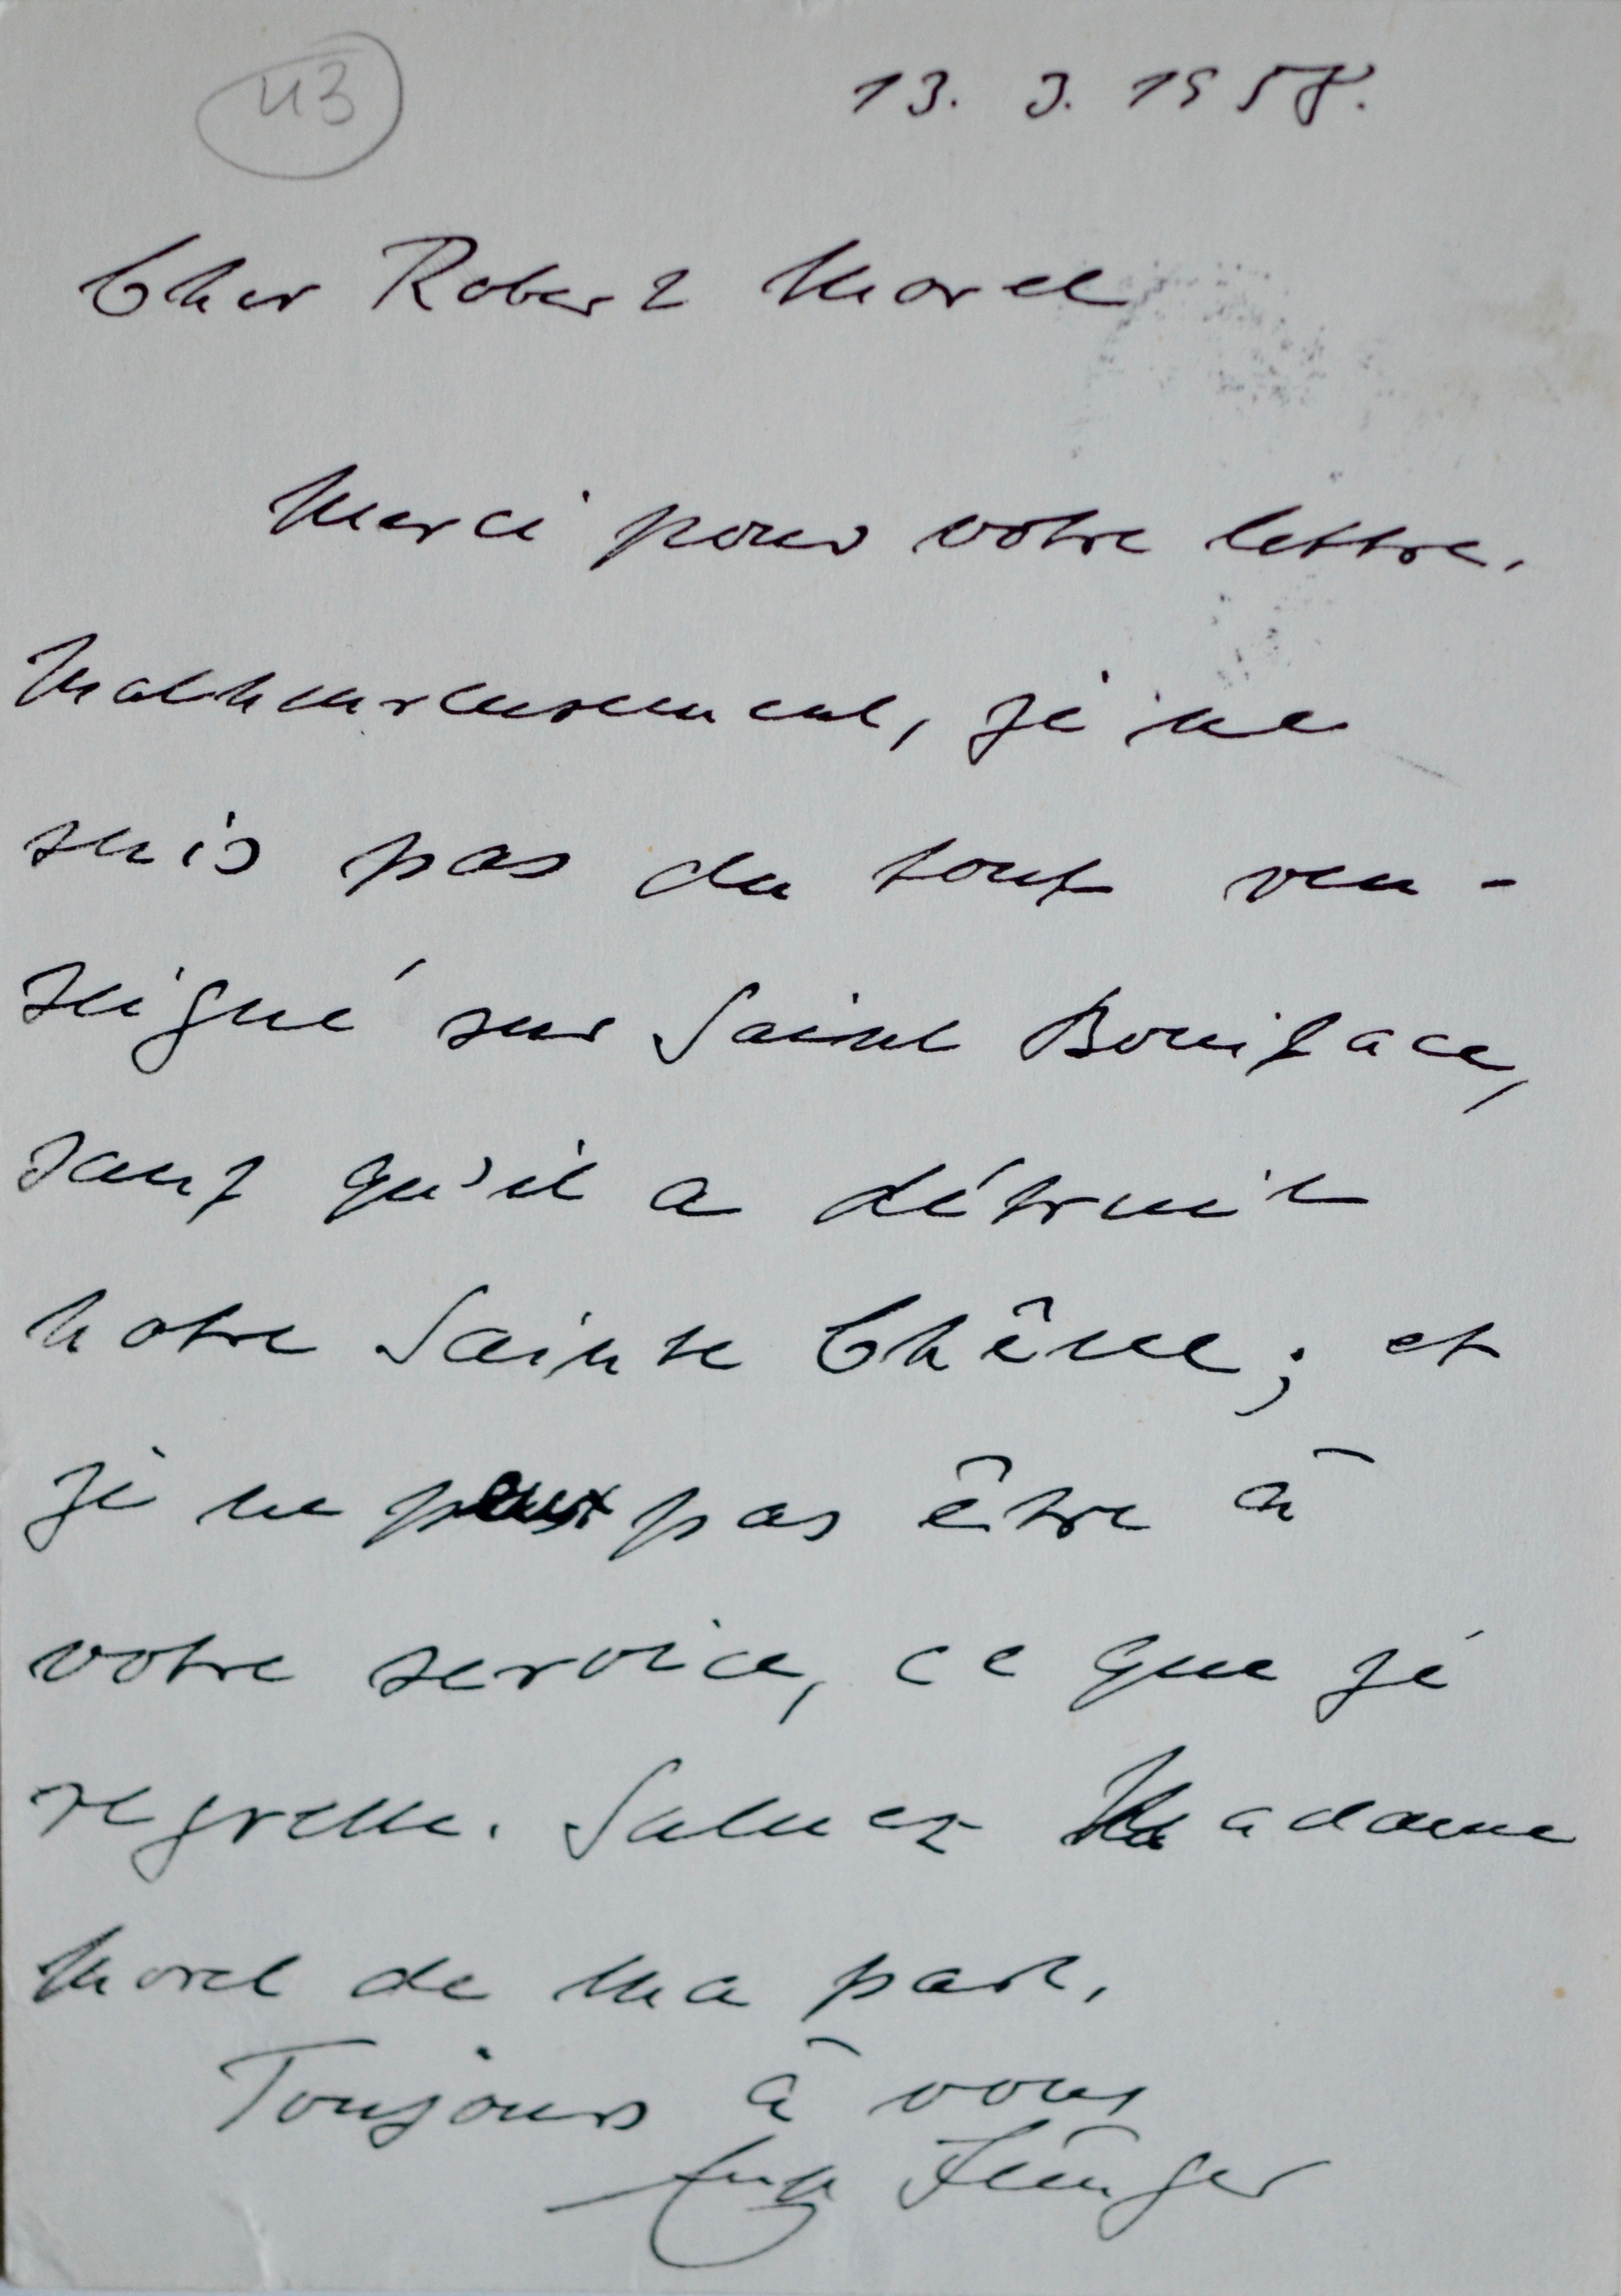 43
13. 3. 1958.
Cher Robert Morel
Merci pour votre lettre.
Malheureusement, je ne
suis pas du tout ren-
seigné sur Saint Boniface,
sauf qu'il a détruit
notre Sainte Chêne; et
je ne peux pas être à
votre service, ce que je
regrette. Saluez Madame
Morel de ma part.
Toujours à vous
Ernst Jünger